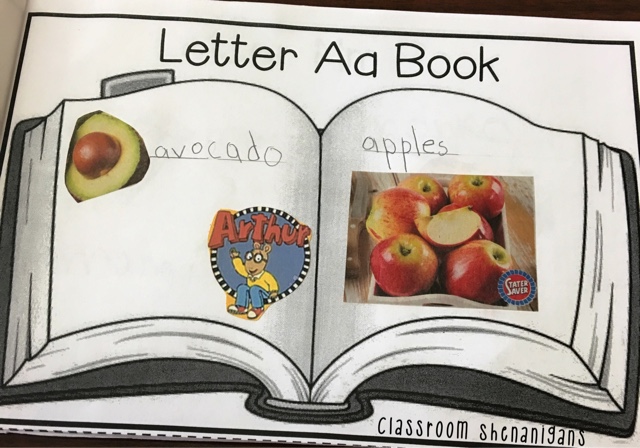 Letter Aa Book
avocado
apples
Arthur
STATER
SAVER
Classroom Shenanigans